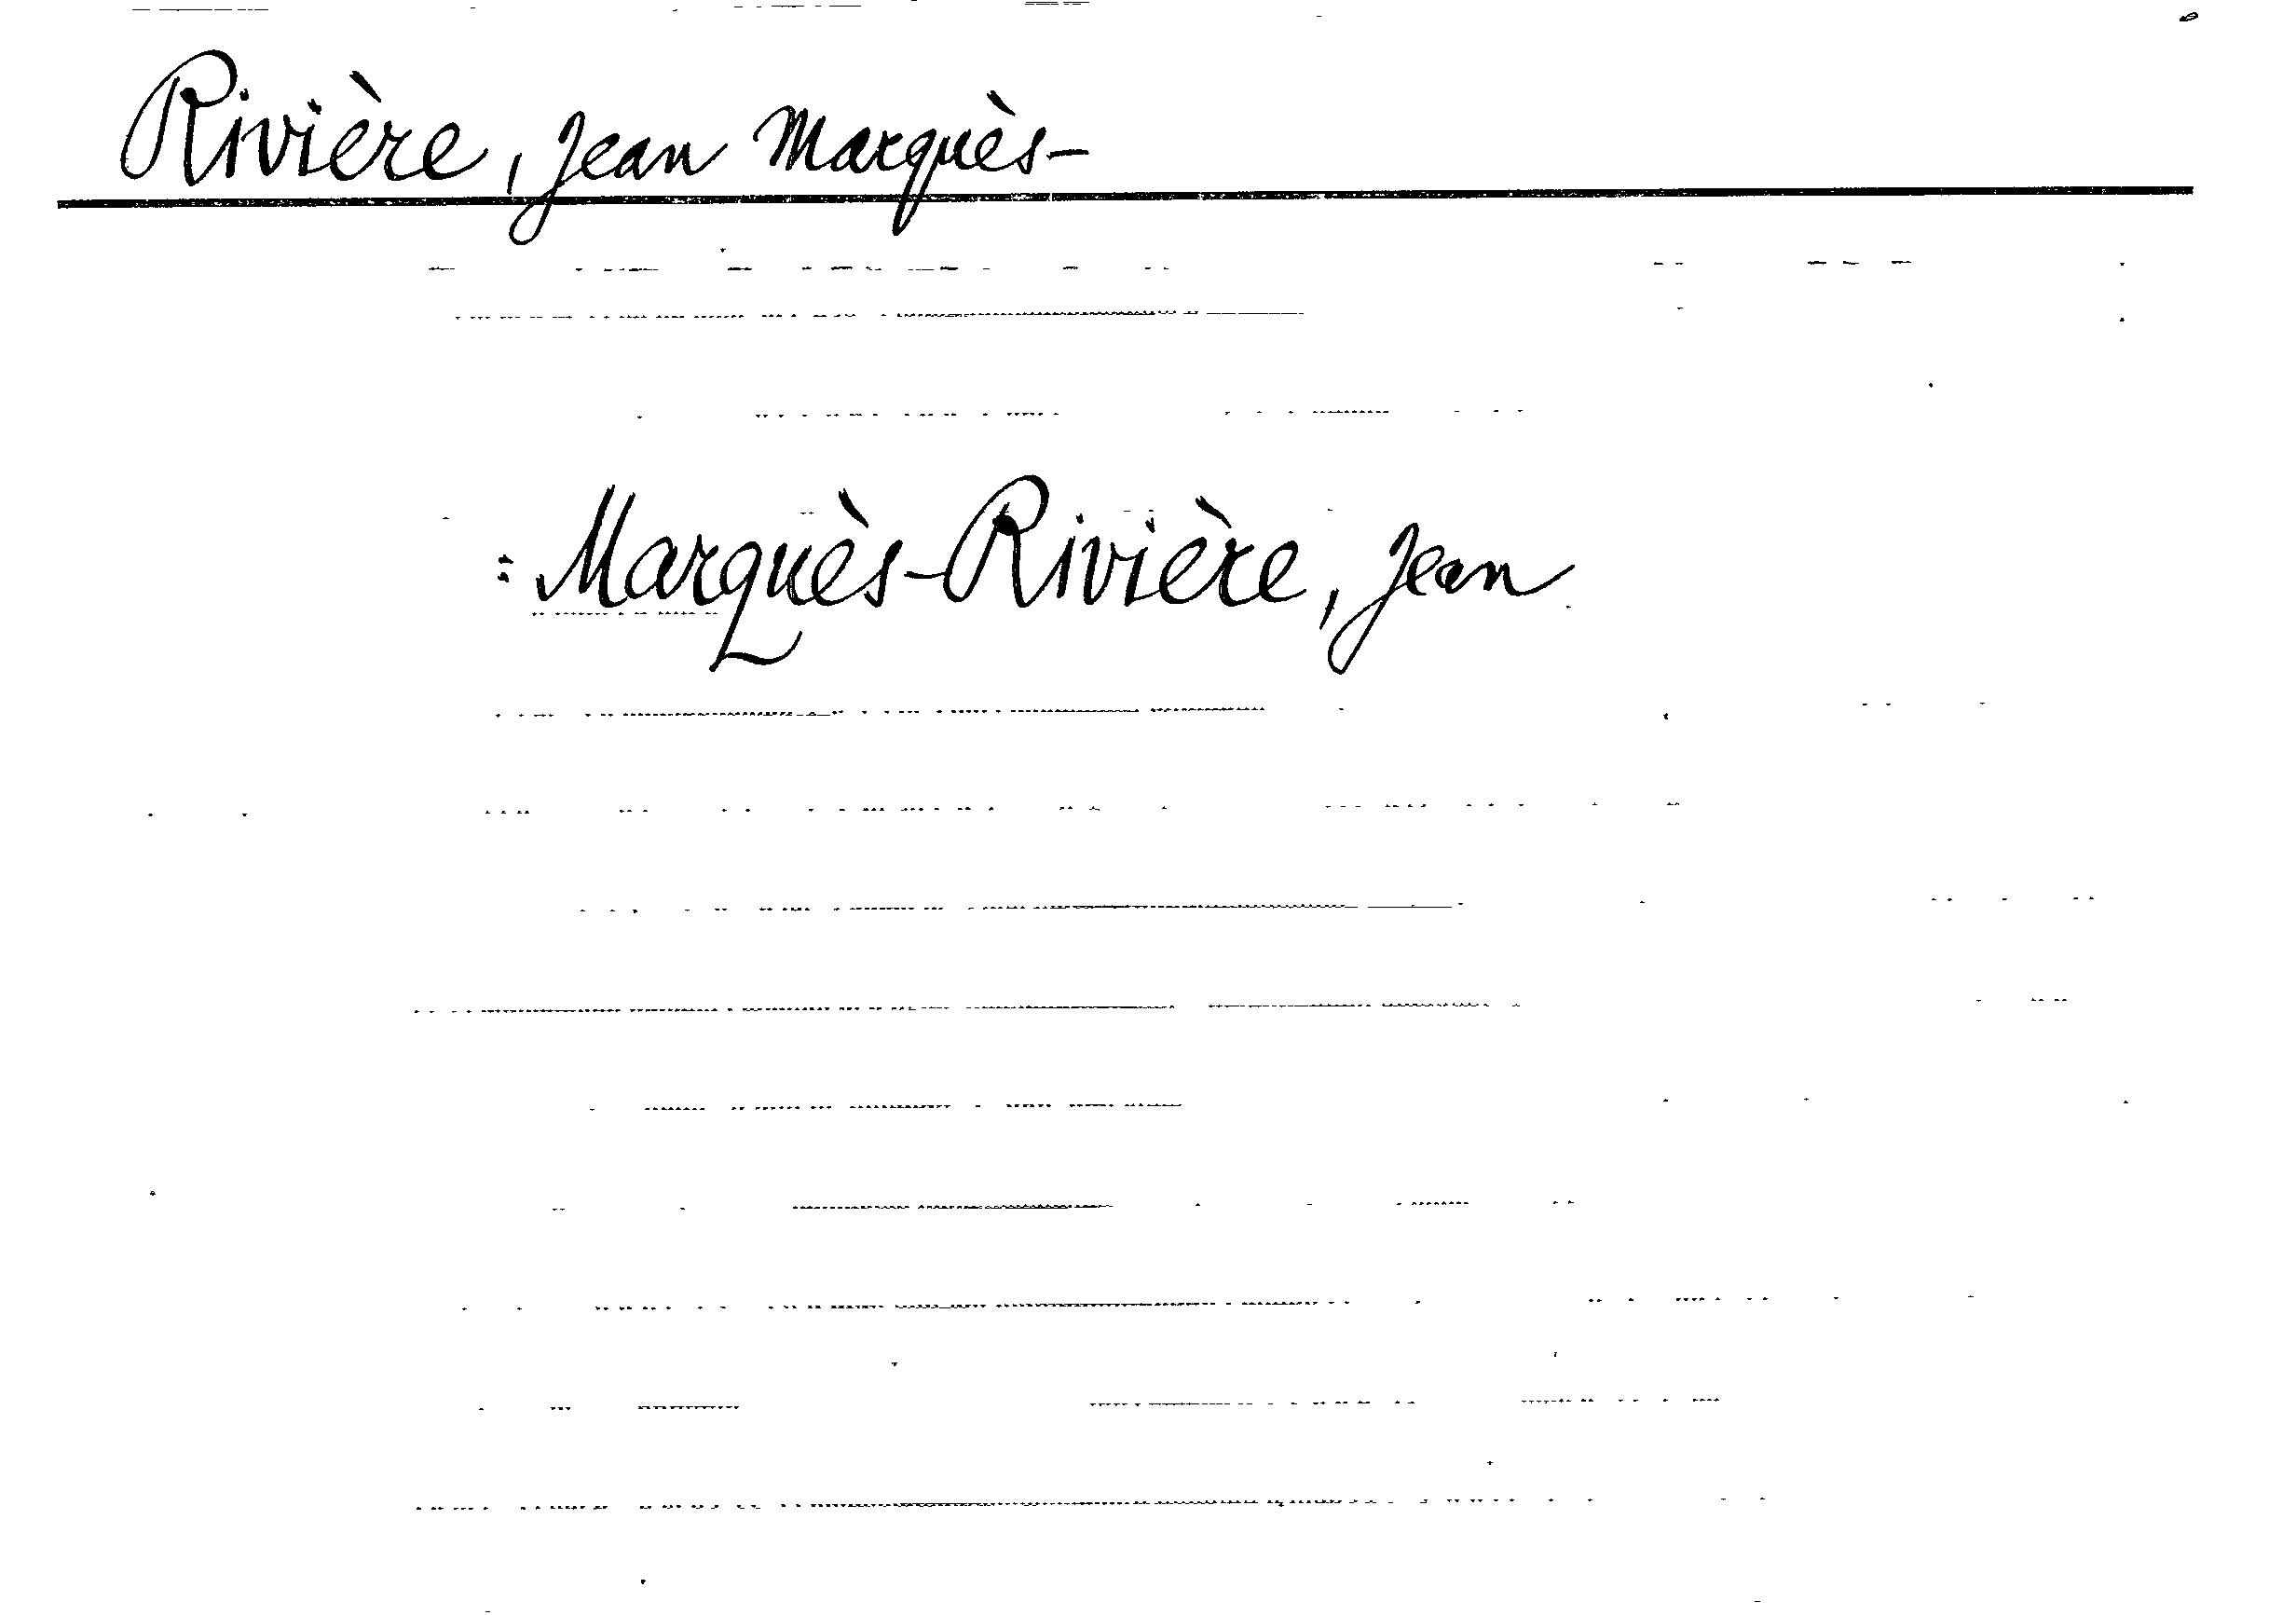 Rivière, Jean Marquès-
= Marquès-Rivière, Jean